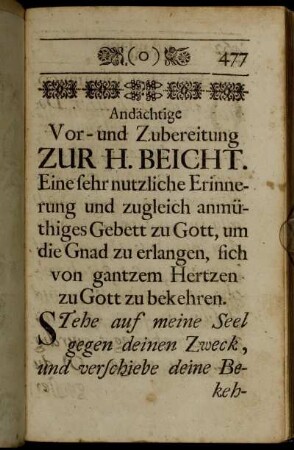 (o) 477
Andächtige
Vor- und Zubereitung
ZUR H. BEICHT.
Eine sehr nutzliche Erinne-
rung und zugleich anmü-
thiges Gebett zu Gott, um
die Gnad zu erlangen, sich
von gantzem Hertzen
zu Gott zu bekehren.
STehe auf meine Seel
gegen deinen Zweck,
und verschiebe deine Be-
keh-